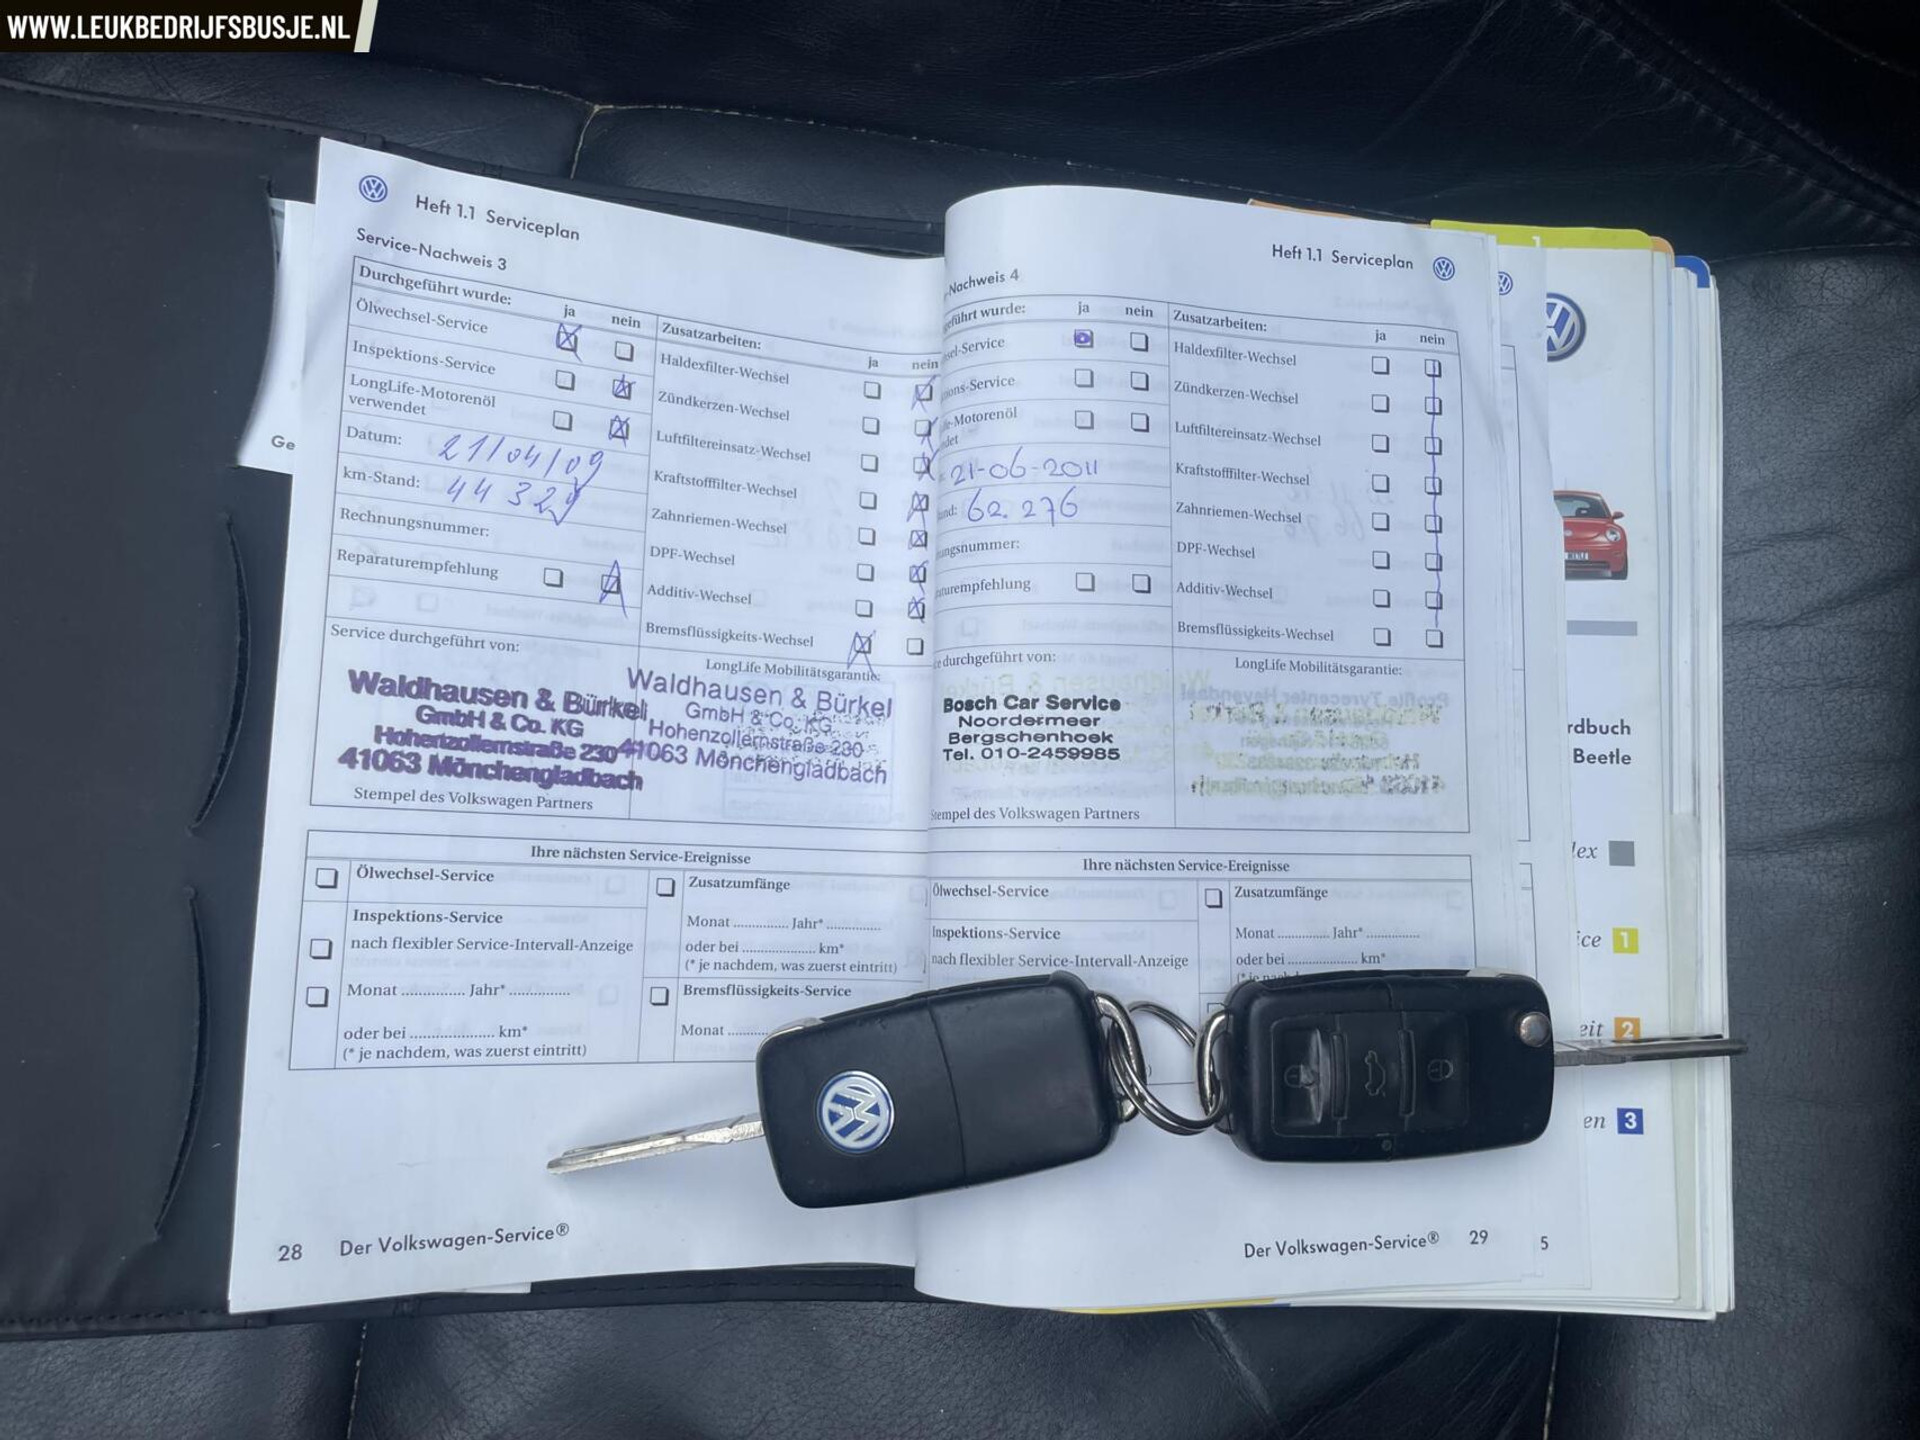 WWW.LEUKBEDRIJFSBUSJE.NL
Heft 1.1 Serviceplan
Service-Nachweis 3
Durchgeführt wurde:
ja nein
Ölwechsel-Service
Inspektions-Service
LongLife-Motorenöl
verwendet
Datum: 21/04/09
km-Stand:
Rechnungsnummer:
Reparaturempfehlung
Zusatzarbeiten:
ja nein
Haldexfilter-Wechsel
Zündkerzen-Wechsel
Luftfiltereinsatz-Wechsel
Kraftstofffilter-Wechsel
Zahnriemen-Wechsel
DPF-Wechsel
Additiv-Wechsel
Bremsflüssigkeits-Wechsel
Service durchgeführt von:
Waldhausen & Bürkel
GmbH & Co. KG
Hohenzollernstraße 230
41063 Mönchengladbach
Stempel des Volkswagen Partners
LongLife Mobilitätsgarantie:
Waldhausen & Bürkel
GmbH & Co. KG
Hohenzollernstraße 230
41063 Mönchengladbach
Ihre nächsten Service-Ereignisse
Ölwechsel-Service
Inspektions-Service
nach flexibler Service-Intervall-Anzeige
Monat ............... Jahr* ...............
oder bei .................... km*
(* je nachdem, was zuerst eintritt)
Zusatzumfänge
Monat .............. Jahr* ..............
oder bei .................. km*
(* je nachdem, was zuerst eintritt)
Bremsflüssigkeits-Service
Monat ..........
28 Der Volkswagen-Service®
Heft 1.1 Serviceplan
-Nachweis 4
führt wurde:
ja nein
sel-Service
ions-Service
fe-Motorenöl
det
21-06-2011
62.276
ungsnummer:
aturempfehlung
Zusatzarbeiten:
ja nein
Haldexfilter-Wechsel
Zündkerzen-Wechsel
Luftfiltereinsatz-Wechsel
Kraftstofffilter-Wechsel
Zahnriemen-Wechsel
DPF-Wechsel
Additiv-Wechsel
Bremsflüssigkeits-Wechsel
e durchgeführt von:
Bosch Car Service
Noordermeer
Bergschenhoek
Tel. 010-2459985
Stempel des Volkswagen Partners
LongLife Mobilitätsgarantie:
Ihre nächsten Service-Ereignisse
Ölwechsel-Service
Inspektions-Service
nach flexibler Service-Intervall-Anzeige
Zusatzumfänge
Monat .............. Jahr* ..............
oder bei .................. km*
Der Volkswagen-Service® 29
5
Ge
rdbuch
Beetle
lex
ice 1
eit 2
en 3